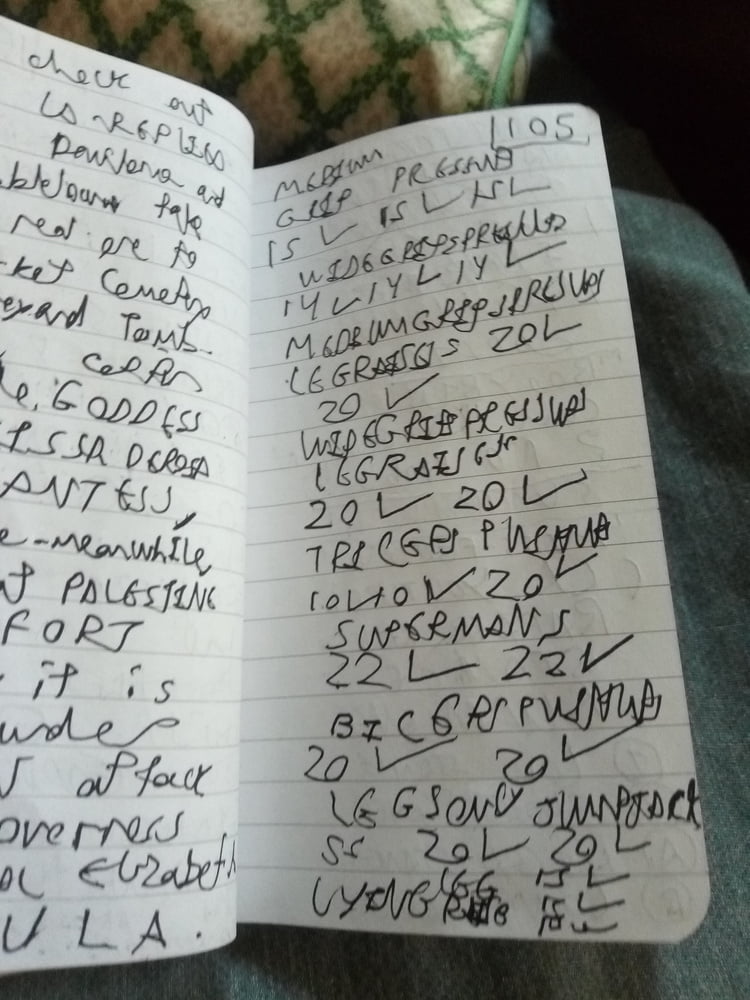 check out
REPLICA
and
fake
real are to
Cemetery
and Tomb
GODDESS
ANTESS
e-meanwhile
at PALESTINE
FORT
it is
under
attack
overness
Elizabeth
ULA.
1105
MEDIUM
GRIP PRESSUPS
15 ✓ 15 ✓ 15 ✓
WIDEGRIPSPRESSUPS
14 ✓ 14 ✓ 14 ✓
MEDIUMGRIPSPRESSUPS
LEGRAISES 20 ✓
20 ✓
WIDEGRIPPRESSUPS
LEGRAISES
20 ✓ 20 ✓
TRICEPS PUSHUPS
10 ✓ 10 ✓ 20 ✓
SUPERMANS
22 ✓ 22 ✓
BICEPS PUSHUPS
20 ✓ 20 ✓
LEGSONLY JUMPJACK
SS 20 ✓ 20 ✓
LYING LEG 15 ✓
15 ✓